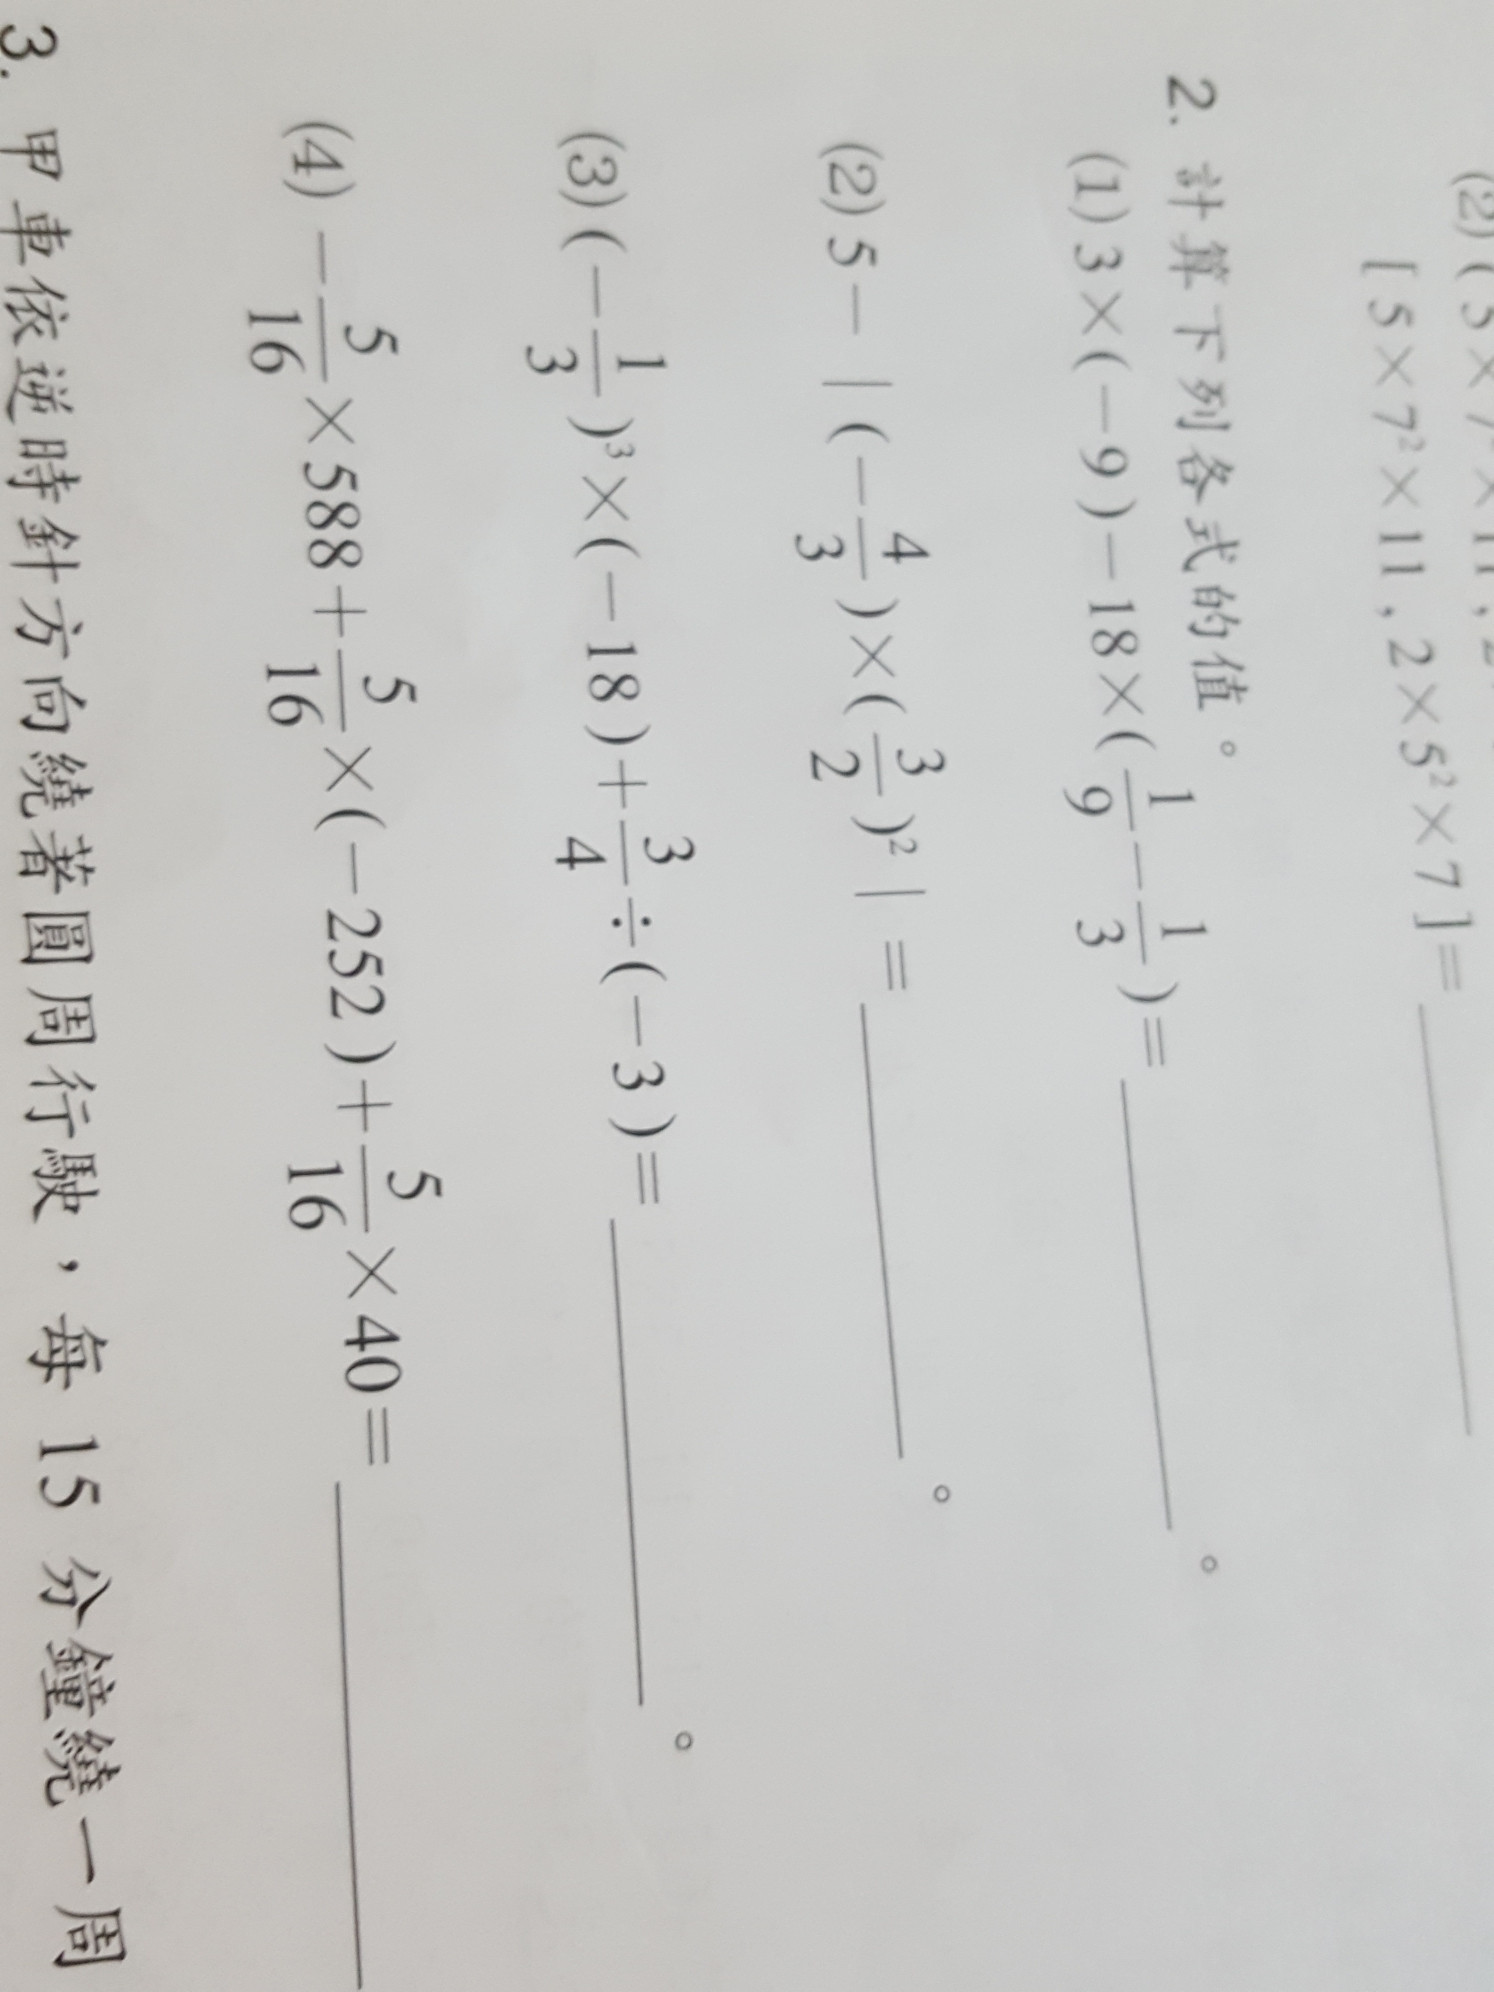 (2)(5×7²×11,2
[5×7²×11,2×5²×7]=
2. 計算下列各式的值。
(1) 3×(-9)-18×(1/9-1/3)=________。
(2) 5-|(-4/3)×(3/2)²|=________。
(3) (-1/3)³×(-18)+3/4÷(-3)=________。
(4) -5/16×588+5/16×(-252)+5/16×40=________
3. 甲車依逆時針方向繞著圓周行駛,每 15 分鐘繞一周